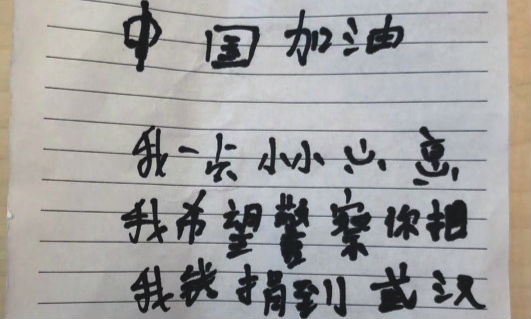 中国加油
我一点小小心意
我希望警察你把
我钱捐到武汉